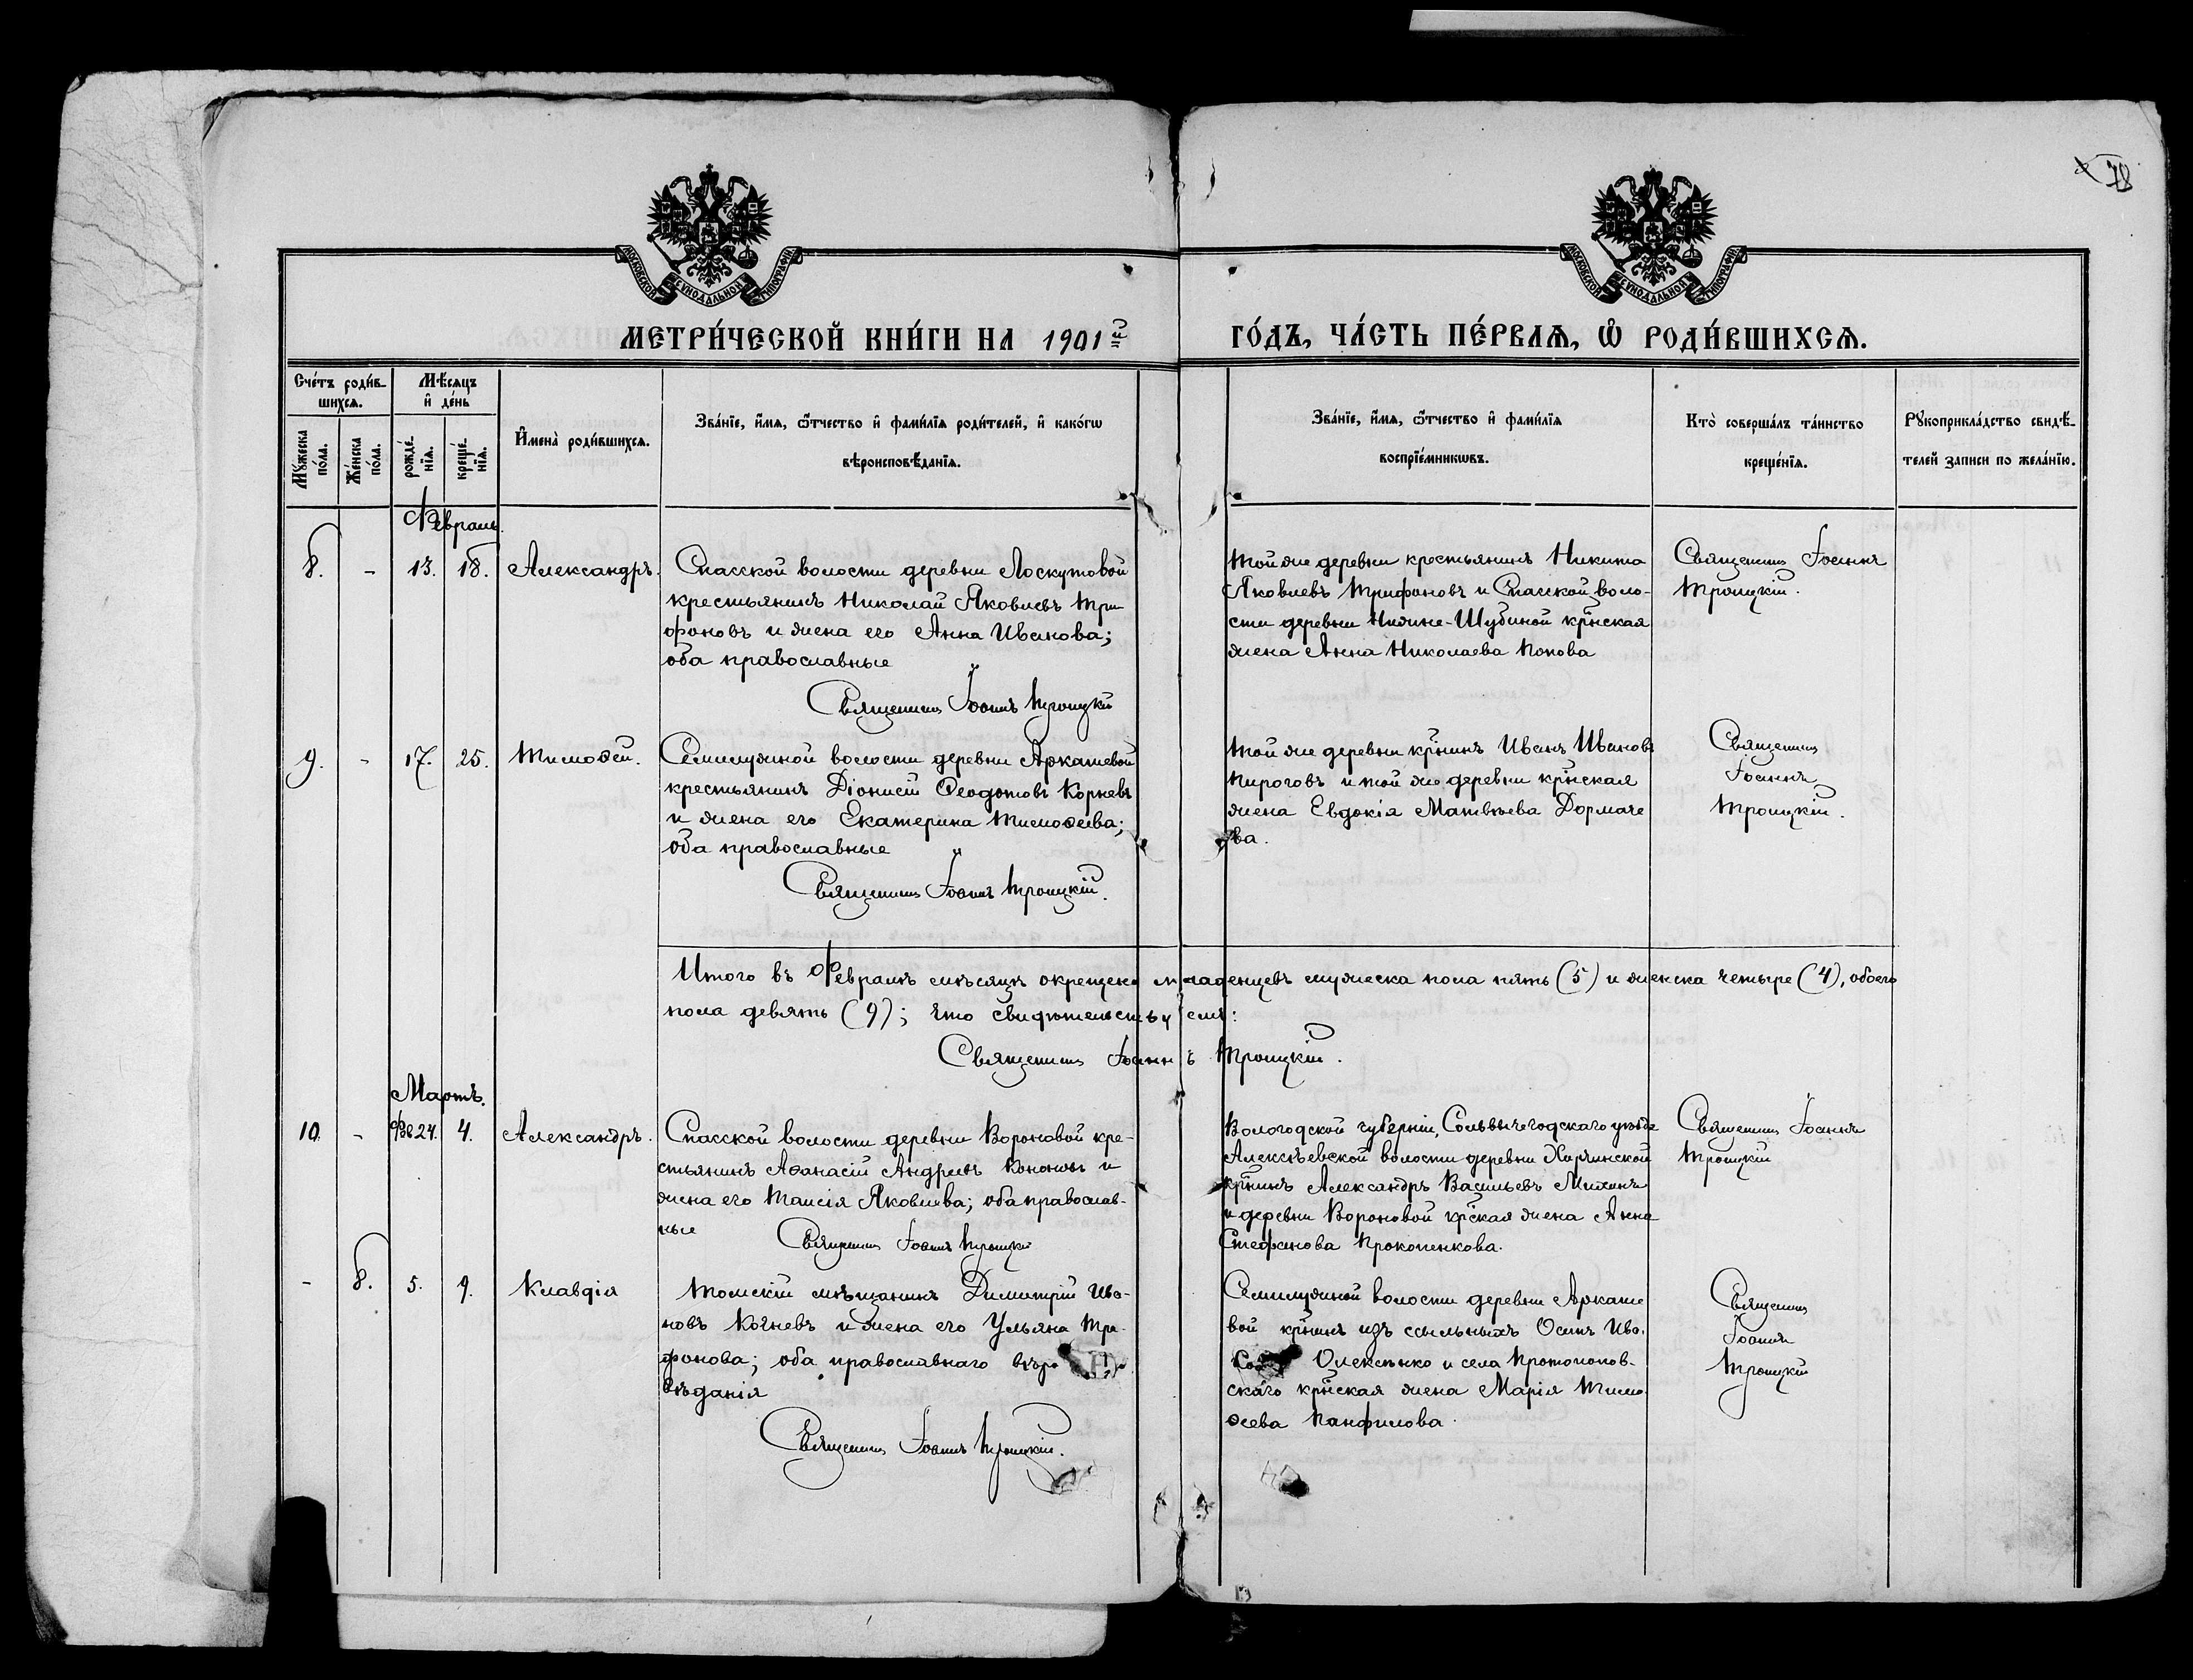 78
МОСКОВСКОЙ СѴНОДАЛЬНОЙ ТИПОГРАФІИ
МОСКОВСКОЙ СѴНОДАЛЬНОЙ ТИПОГРАФІИ
МЕТРИ́ЧЕСКОЙ КНИ́ГИ НА 1901й ГО́ДЪ, ЧА́СТЬ ПЕ́РВАѦ, Ѡ҆ РОДИ́ВШИХСѦ.
Сче́тъ роди́вшихсѧ.
Мѹ́жеска по́ла.
Же́нска по́ла.
Мѣ́сѧцъ и҆ де́нь
рожде́нїѧ.
креще́нїѧ.
И҆мена̀ роди́вшихсѧ.
Зва́нїе, и҆́мѧ, ѻ҆́тчество и҆ фами́лїѧ роди́телей, и҆ како́гѡ
вѣроисповѣ́данїѧ.
Зва́нїе, и҆́мѧ, ѻ҆́тчество и҆ фами́лїѧ
воспрїе́мникѡвъ.
Кто̀ соверша́лъ та́инство
креще́нїѧ.
Рѹкоприкла́дство свидѣ́-
телей записи по жела́нїю.
Февраль.
8. - 13. 18. Александръ.
Спасской волости деревни Лоскутовой
крестьянинъ Николай Яковлевъ Три-
фоновъ и жена его Анна Иванова;
оба православные
Священникъ Іоаннъ Троицкій
Той же деревни крестьянинъ Никита
Яковлевъ Трифоновъ и Спасской воло-
сти деревни Нижне-Шубиной кр҃нская
жена Анна Николаева Попова
Священникъ Іоаннъ
Троицкій.
9. - 17. 25. Тимоѳей.
Семилужной волости деревни Аркашевой
крестьянинъ Діонисій Ѳеодотовъ Корневъ
и жена его Екатерина Тимоѳеева;
оба православные
Священникъ Іоаннъ Троицкій.
Той же деревни кр҃нинъ Иванъ Ивановъ
Пироговъ и той же деревни кр҃нская
жена Евдокія Матвѣева Дормаче
ва.
Священникъ
Іоаннъ
Троицкій.
Итого въ Февралѣ мѣсяцѣ окрещено младенцевъ мужеска пола пять (5) и женска четыре (4), обоего
пола девять (9); что свидѣтельствуемъ:
Священникъ Іоаннъ Троицкій.
Мартъ.
10. - Фев 24. 4. Александръ.
Спасской волости деревни Вороновой кре-
стьянинъ Аѳанасій Андреевъ Кононовъ и
жена его Таисія Яковлева; оба православ-
ные
Священникъ Іоаннъ Троицкій
Вологодской губерніи, Сольвычегодскаго уѣзда
Алексѣевской волости деревни
кр҃нинъ Александръ Васильевъ
и деревни Вороновой кр҃ская жена Анна
Стефанова Прокопенкова.
Священникъ Іоаннъ
Троицкій
- 8. 5. 9. Клавдія
Томскій мѣщанинъ Димитрій Ива-
новъ Когневъ и жена его Ульяна Три-
фонова; оба православнаго вѣро
вѣданія
Священникъ Іоаннъ Троицкій.
Семилужной волости деревни Аркаше
вой кр҃нинъ изъ ссыльныхъ Осипъ Ива-
Олексенко и села Протопопов-
скаго кр҃нская жена Марія Тимо-
ѳеева Панфилова.
Священникъ
Іоаннъ
Троицкій